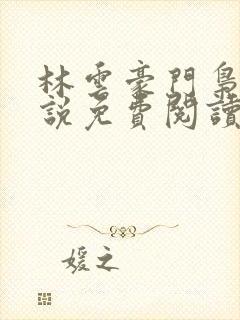 林雲豪門梟
說免費閱讀
媛之